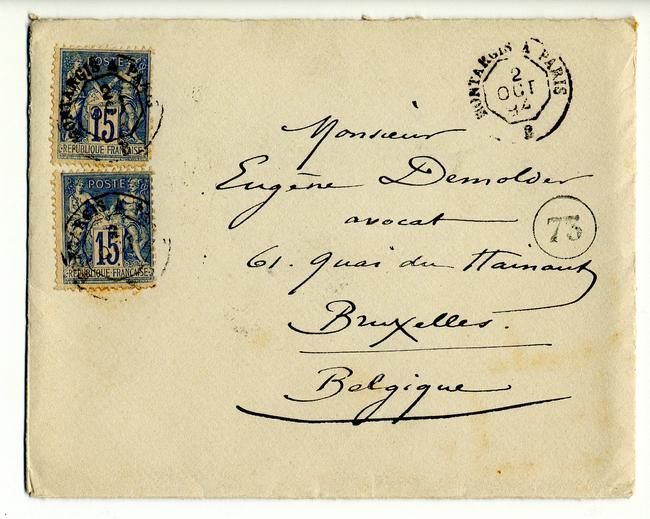 POSTE
15
RÉPUBLIQUE FRANÇAISE
POSTE
15
RÉPUBLIQUE FRANÇAISE
MONTARGIS A PARIS
2
OCT
94
Monsieur
Eugène Demolder
avocat
61. Quai du Hainaut
Bruxelles.
Belgique
75